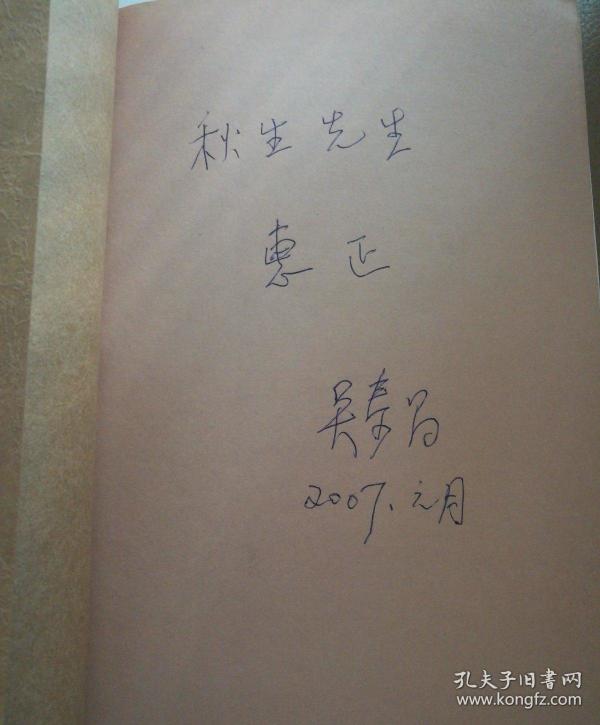 秋生先生
惠正
吴泰昌
2007.元月
孔夫子旧书网
www.kongfz.com